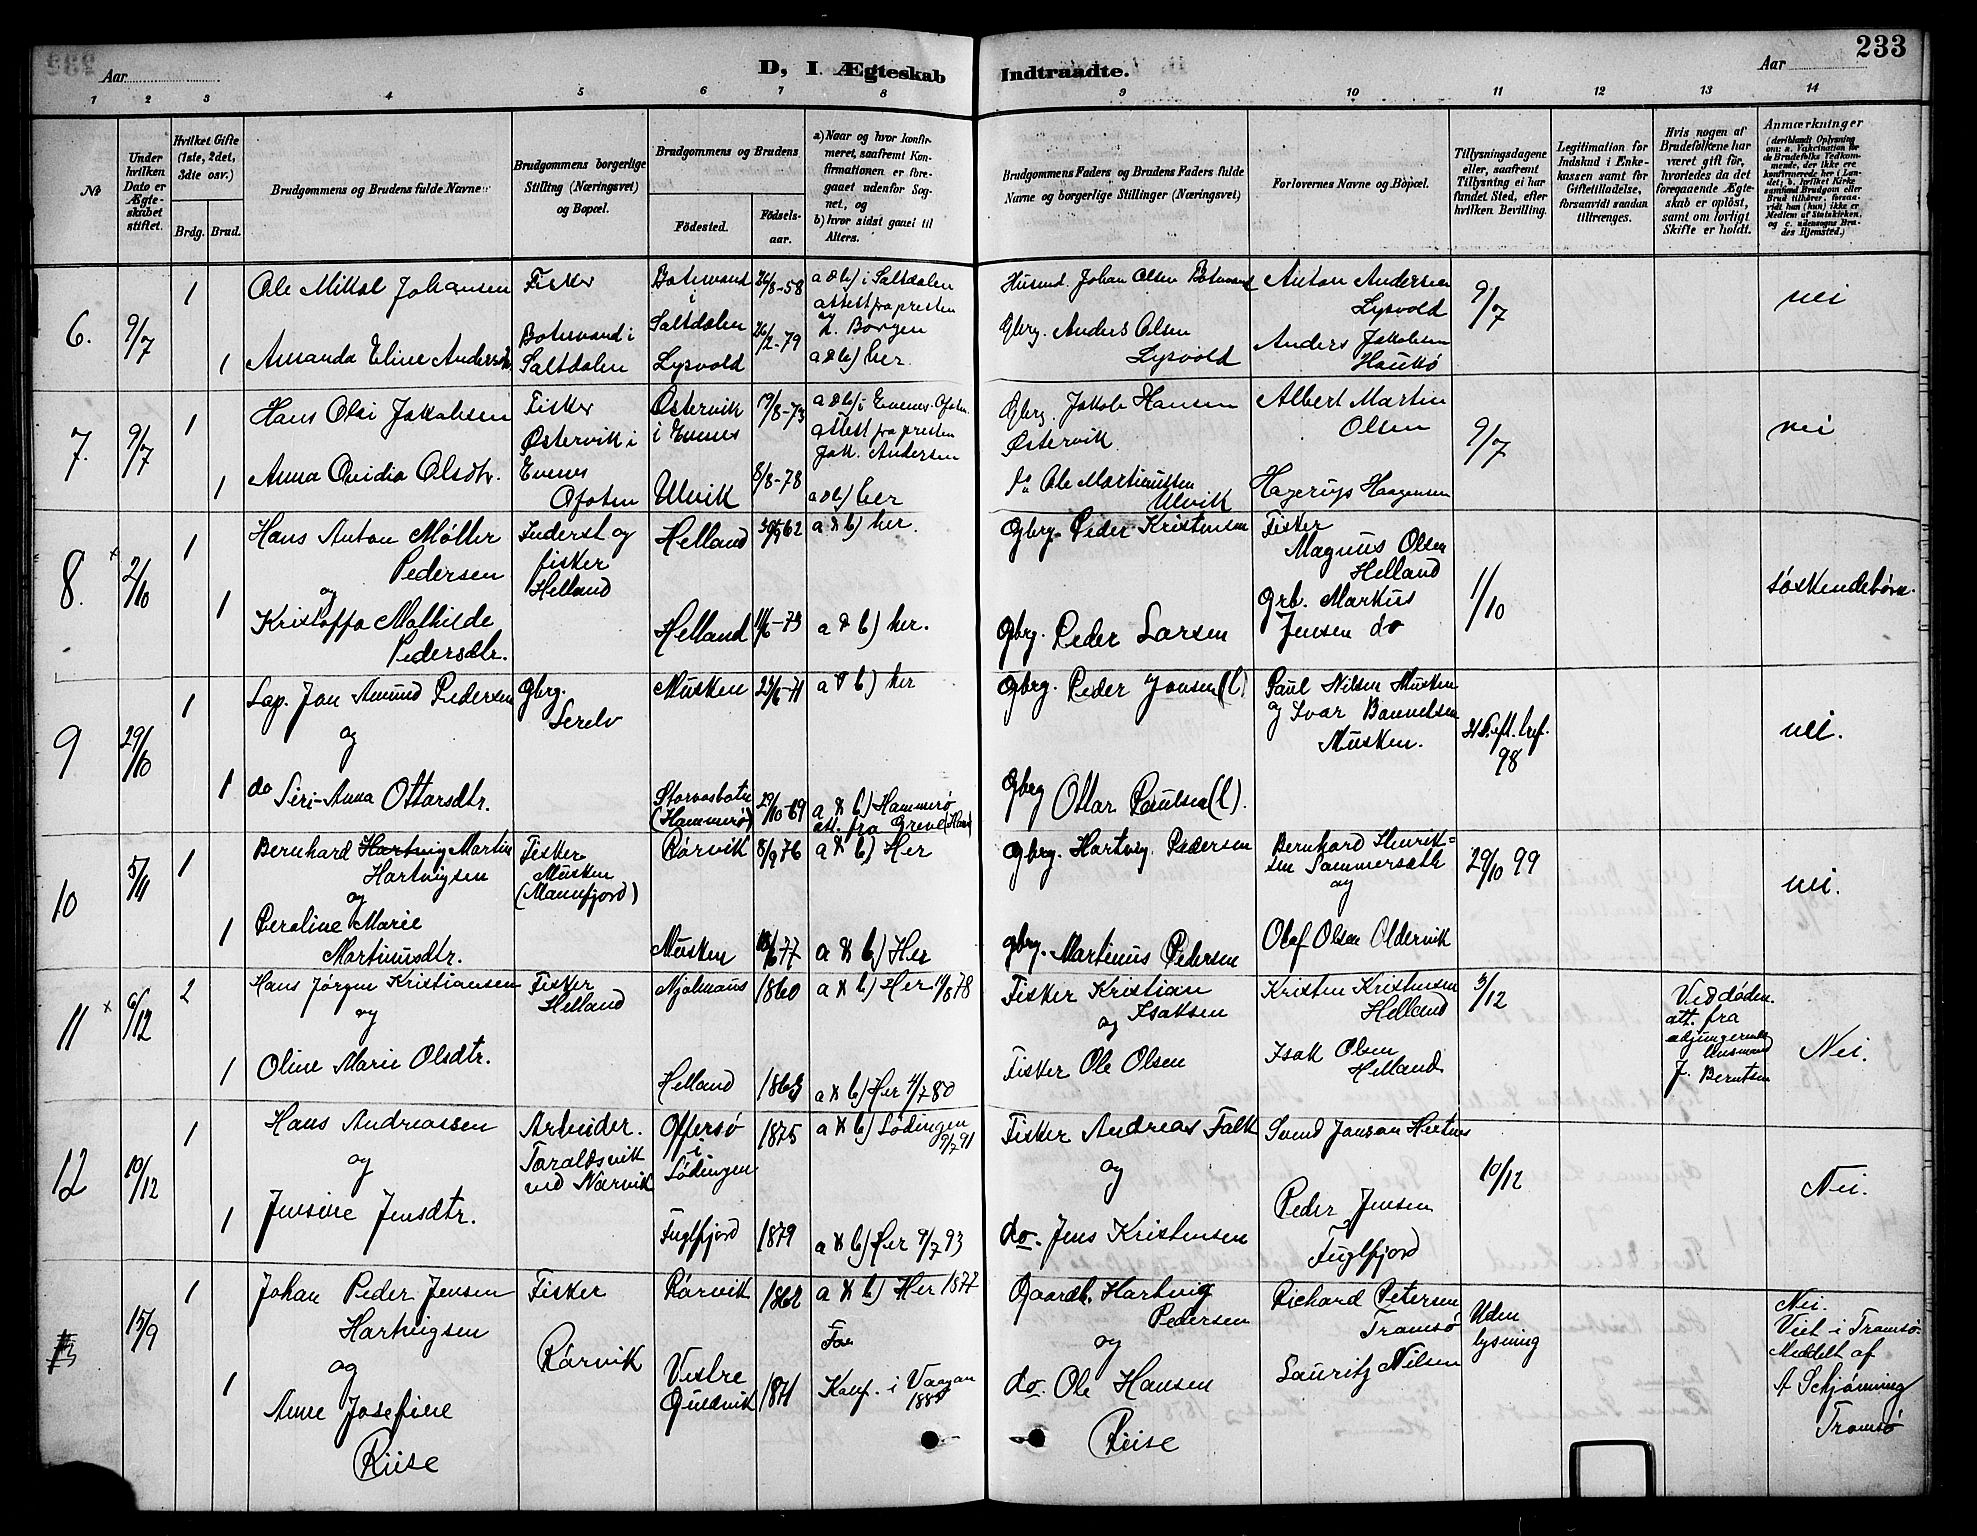 233
Aar
D, I Ægteskab Indtraadte.
Aar
1 2 3 4 5 6 7 8 9 10 11 12 13 14
No
Under hvilken Dato er Ægteskabet stiftet.
Hvilket Gifte (1ste, 2det, 3die osv.)
Brdg. Brud.
Brudgommens og Brudens fulde Navne
Brudgommens borgerlige Stilling (Næringsvei) og Bopæl.
Brudgommens og Brudens
Fødested.
Fødselsaar.
a) Naar og hvor konfirmeret, saafremt Konfirmationen er foregaaet udenfor Sognet, og
b) hvor sidst gaaet til Alters.
Brudgommens Faders og Brudens Faders fulde Navne og borgerlige Stillinger (Næringsvei)
Forlovernes Navne og Bopæl.
Tillysningsdagene eller, saafremt Tillysning ei har fundet Sted, efter hvilken Bevilling.
Legitimation for Indskud i Enkekassen samt for Giftetilladelse, forsaavidt saadan tiltrænges.
Hvis nogen af Brudefolkene har været gift før, hvorledes da det foregaaende Ægteskab er opløst, samt om lovligt Skifte er holdt.
Anmærkninger
(deriblandt Oplysning om: a. Vakcination for de Brudefolks Vedkommende, der ikke ere konfirmerede her i Landet; b. hvilket Kirkesamfund Brudgom eller Brud tilhører, forsaavidt han (hun) ikke er Medlem af Statskirken, og c. udensogns Brudes Hjemsted.)
6. 9/7 1 Ole Mikal Johansen Fisker Botnvand i Saltdalen 26/8-58 a & b) i Saltdalen attest fra presten Borgen Husmd. Johan Olsen Botnvand Anton Andersen Lysvold 9/7 nei
1 Amanda Eline Andersdtr. Botnvand i Saltdalen Lysvold 26/2-79 a & b) her Gbrg. Anders Olsen Lysvold Anders Jakobsen Haukø
7. 9/7 1 Hans Olai Jakobsen Fisker Østervik i Evenes 19/8-73 a & b) i Evenes-Ofoten attest fra presten Jak. Andersen Gbrg. Jakob Hansen Østervik Albert Martin Olsen 9/7 nei
1 Anna Ovidia Olsdtr. Østervik i Evenes Ofoten Ulvik 8/8-78 a & b) her Ole Martinussen Ulvik Hagerup Haagensen
8. 2/10 1 Hans Anton Møller Pedersen Inderst og fisker Helland Helland 62 a & b) her. Gbrg. Peder Kristensen Fisker Magnus Olsen Helland 1/10 søskendebørn.
og
1 Kristoffa Mathilde Pedersdtr. Helland 11/6-73 a & b) her. Gbrg. Peder Larsen Grb. Markus Jensen do
9 29/10 1 Lap. Jon Amund Pedersen Gbrg. Serelv Musken 23/6-71 a & b) her Gbrg. Peder Jonsen (l) Paul Nilsen Musken og Ivar Musken. 98 nei.
og
1 do Siri-Anna Ottarsdtr. Storvasbotn (Hammerø) 29/10-69 a & b) Hammerø att. fra Greve Gbrg Ottar Paulsen (l).
10 5/11 1 Bernhard Hartvig Martin Hartvigsen Fisker Musken (Mannfjord) Rørvik 8/9 76 a & b) Her Gbrg. Hartvig Pedersen Bernhard Henriksen Sommersæth 29/10 99 nei.
og
1 Peroline Marie Martinusdtr. Musken 77 a & b) Her gbrg. Martinus Pedersen og Olaf Olsen Oldervik
11 6/12 2 Hans Jørgen Kristiansen Fisker Helland Njalmaus 1860 a & b) Her 78 Fisker Kristian Isaksen Kristen Kristensen Helland 3/12 Ved døden. att. fra lensmand J. Berntsen Nei.
og
1 Oline Marie Olsdtr. Helland 1863 a & b) Her 4/7 80 og Fisker Ole Olsen Isak Olsen Helland
12 10/12 1 Hans Andreassen Arbeider. Taraldsvik ved Narvik Offersø i Lødingen 1875 a & b) Lødingen 9/7 91 Fisker Andreas Falk Svend Jonsen 10/12 Nei.
og
1 Jensine Jensdtr. Fuglfjord 1879 a & b) Her 9/7 93 og do. Jens Kristensen Peder Jensen Fuglfjord
13 15/9 1 Johan Peder Jensen Hartvigsen Fisker Rørvik Rørvik 1862 a & b) Her 1877 Gaardb. Hartvig Pedersen Richard Petersen Tromsø Uden lysning Nei. Viet i Tromsø. Meddelt af A Schjønning Tromsø
og
1 Anne Josefine Riise Vestre 1871 Konf. i Vaagan og do. Ole Hansen Riise Lauritz Nilsen